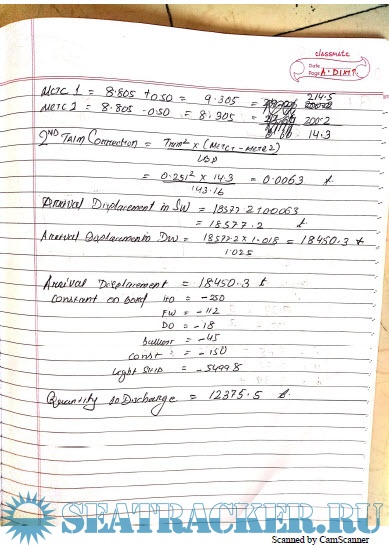 classmate
Date
Page A. DIXIT
MCTC 1 = 8.805 + 0.50 = 9.305 = 214.5
MCTC 2 = 8.805 - 0.50 = 8.305 = 200.2
14.3
2ND Trim Correction = Trim² x (MCTC1 - MCTC2)
LBP
= 0.251² x 14.3 = 0.0063 t.
143.16
Arrival Displacement in SW = 18577.2 + 0.0063
= 18577.2 t.
Arrival Displacement in DW = 18577.2 x 1.018 = 18450.3 t
1.025
Arrival Displacement = 18450.3 t
Constant on board HO = -250
FW = -112
DO = -18
Ballast = -45
Const = -150
Light Ship = -5499.8
Quantity to Discharge = 12375.5 t.
SEATRACKER.RU
Scanned by CamScanner